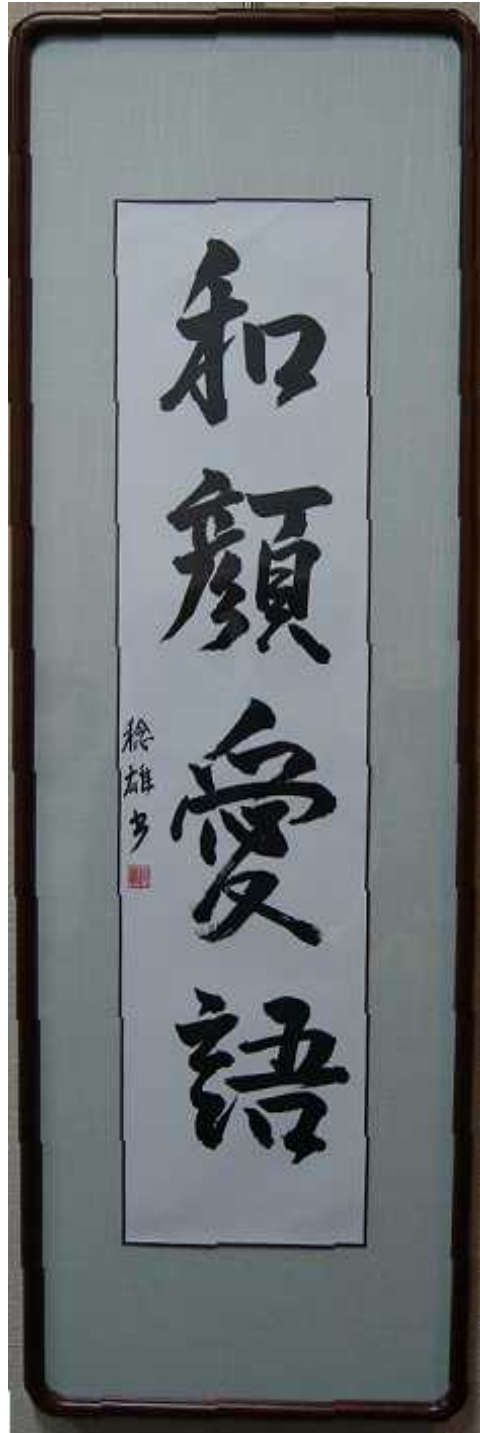 和顔愛語
稔雄書